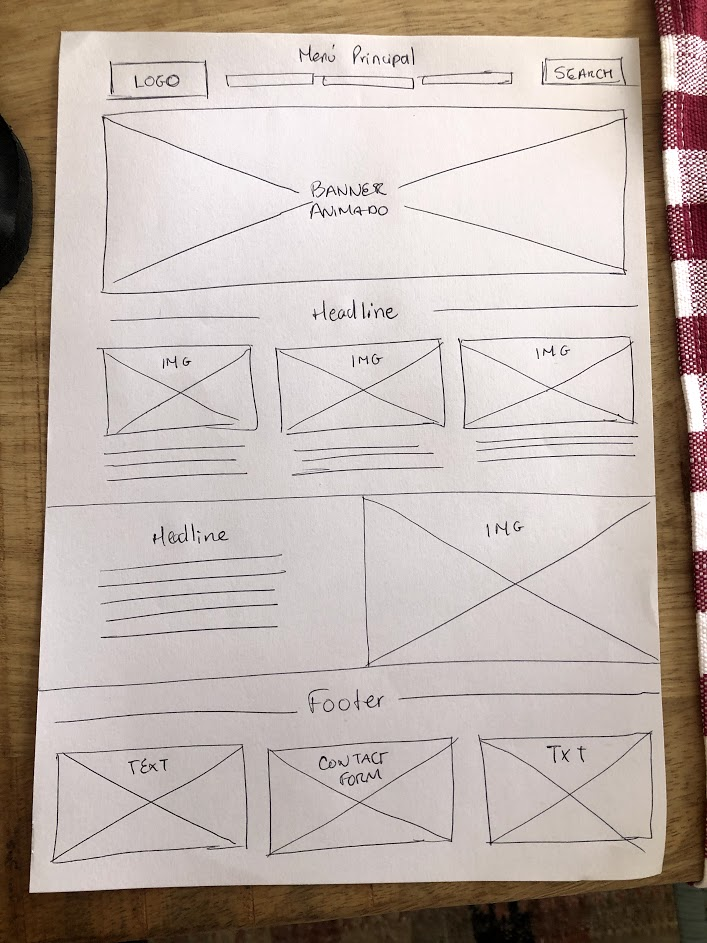 Menú Principal
LOGO
SEARCH
BANNER
ANIMADO
Headline
IMG
IMG
IMG
Hedline
IMG
Footer
TEXT
CONTACT
FORM
TXT